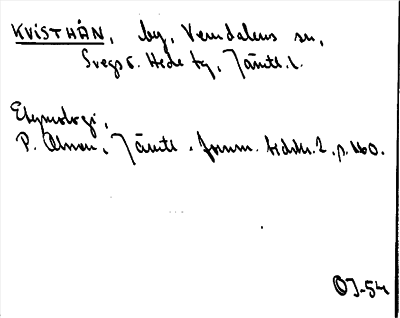 KVISTHÅN, by, Vemdalens sn,
Svegs o. Hede tg, Jämtl. l.
Etymologi,
P. Olsson, Jämtl. fornm. tidskr. 2, p. 160.
OJ-54